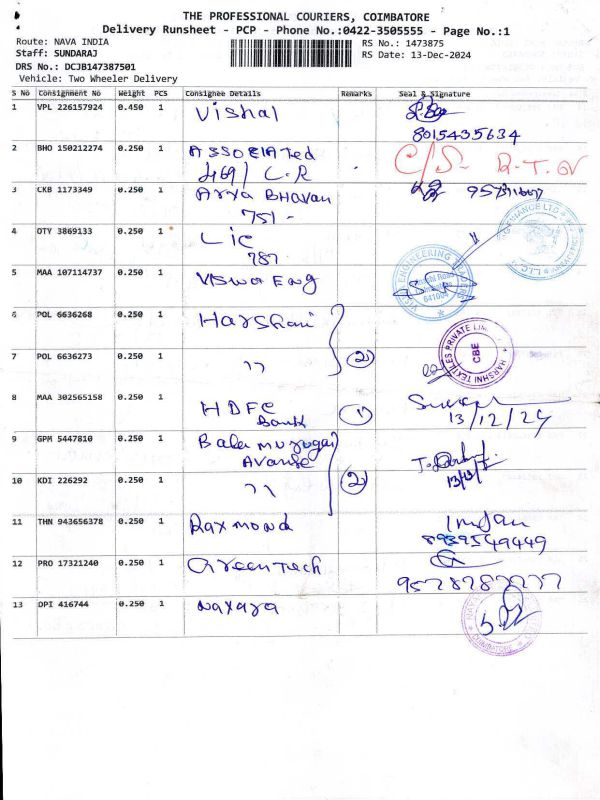 THE PROFESSIONAL COURIERS, COIMBATORE
Delivery Runsheet - PCP - Phone No.:0422-3505555 - Page No.:1
Route: NAVA INDIA
Staff: SUNDARAJ
DRS No.: DCJB147387501
Vehicle: Two Wheeler Delivery
RS No.: 1473875
RS Date: 13-Dec-2024
S No Consignment No Weight PCS Consignee Details Remarks Seal & Signature
1 VPL 226157924 0.450 1 Vishal
8015435634
2 BHO 150212274 0.250 1 ASSOCIATed
469/ C.R
C/S-
3 CKB 1173349 0.250 1 Arya BHavan
751 -
4 OTY 3869133 0.250 1 Lic
787
5 MAA 107114737 0.250 1 Viswa Eng
641004
6 POL 6636268 0.250 1 Harshani
7 POL 6636273 0.250 1 ,, 2
HARSHNI TEXTILES PRIVATE LIMITED
CBE
8 MAA 302565158 0.250 1 HDFC
Bank 1
13/12/24
9 GPM 5447810 0.250 1 Bala murugan
10 KDI 226292 0.250 1 ,, 2
11 THN 943656378 0.250 1 Raymond
8939549449
12 PRO 17321240 0.250 1 Greentech
13 DPI 416744 0.250 1 Naxara
COIMBATORE